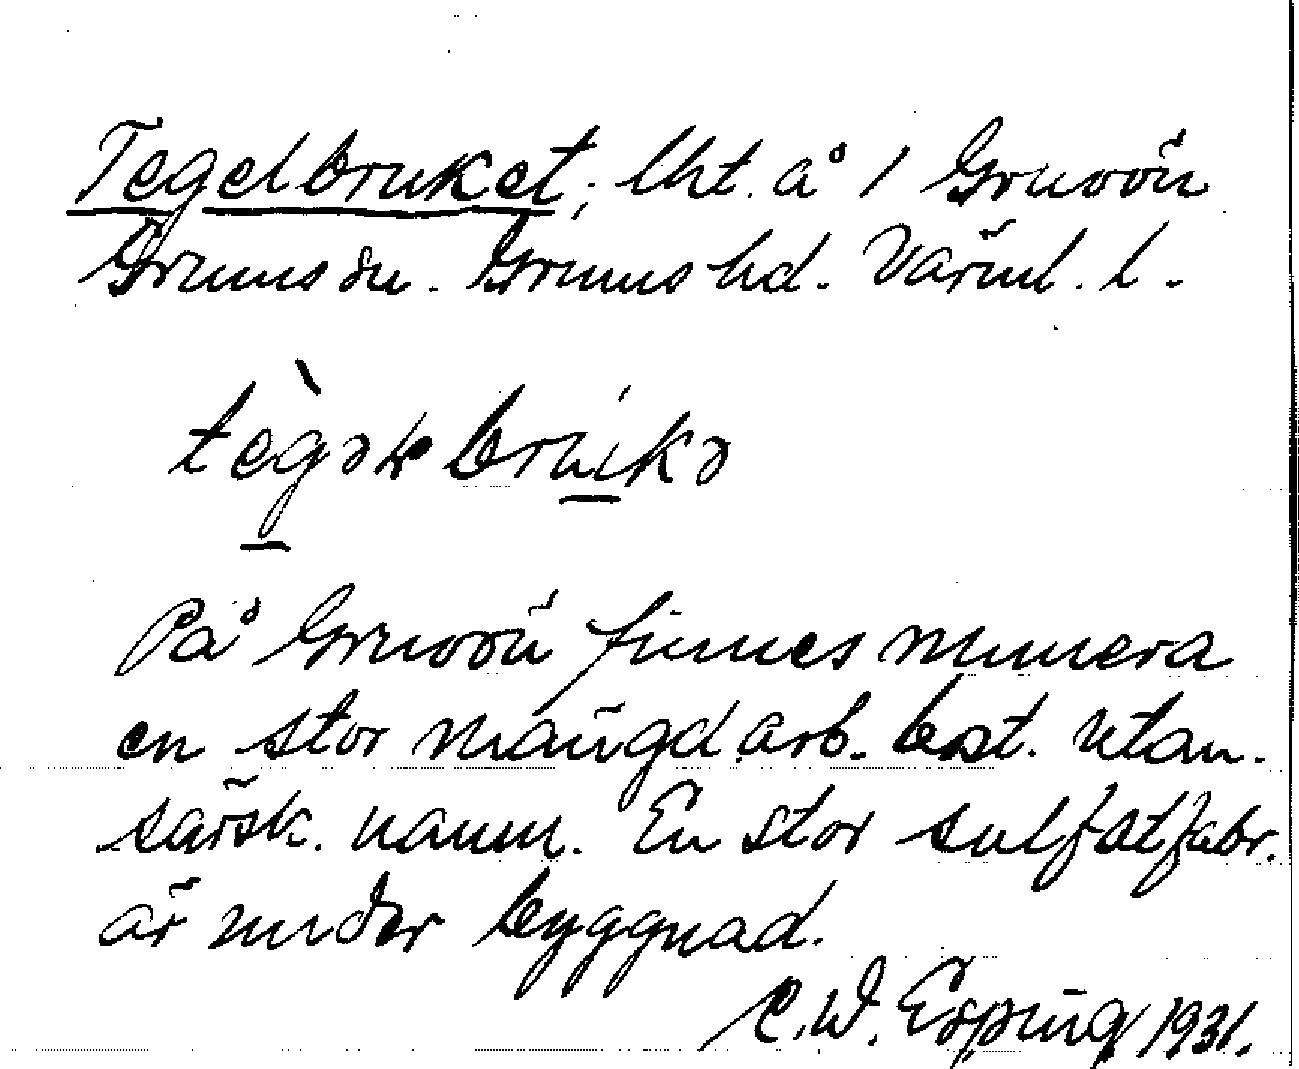 Tegelbruket, lht. å 1 Gruvön
Grums sn. Grums hd. Värml. l.
tègəɫbrukə
På Gruvön finnes numera
en stor mängd arb. bost. utan
särsk. namn. En stor sulfatfabr.
är under byggnad.
C.W. Esping 1931.